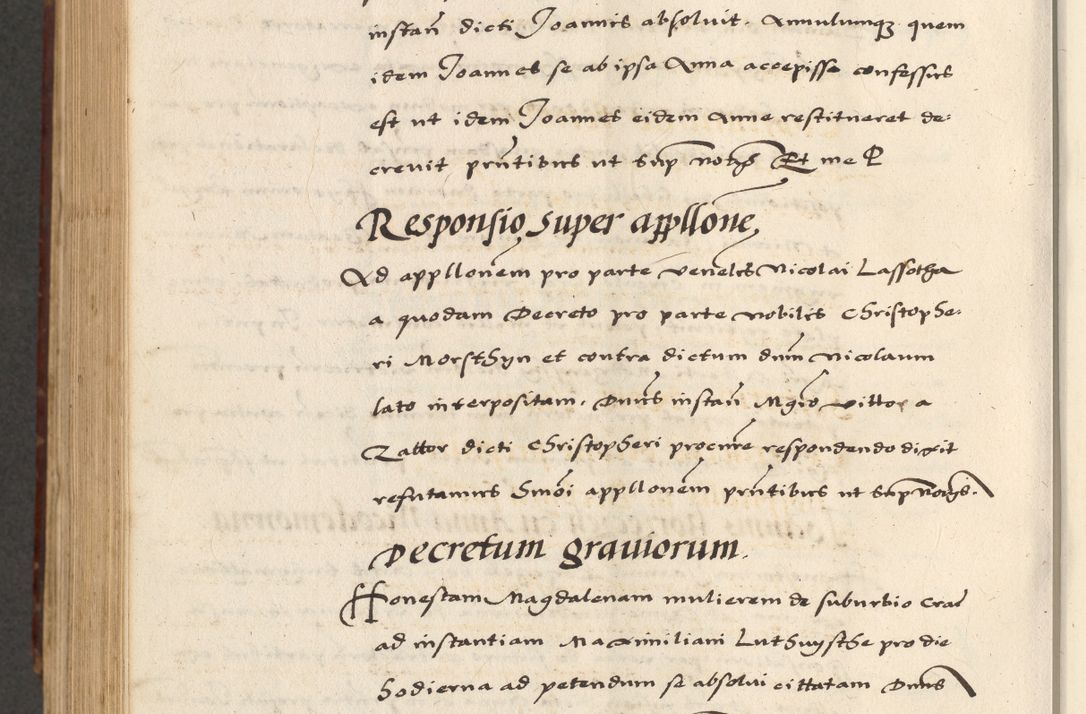 instan̄ dicti Joannis absoluit. Annulumqȝ quem
idem Joannes se ab ipsa Anna accepisse confessus
est ut idem Joannes eidem Anne restitueret de:
creuit pn̄tibus ut sup notis Et me P
Responsio super appllone,
Ad appllonem pro parte Nicolai Lassotha
a quodam Decreto pro parte nobilis Christophe:
ri Morsthyn et contra dictum dnm Nicolaum
lato interpositam. Dnus instan̄ Mgro Vittor a
Zattor dicti Christopheri procure respondendo dixit
refutamus hmoi appllonem pn̄tibus ut sup notis.
Decretum grauiorum.
Honestam Magdalenam mulierem de suburbio Crac
ad instantiam Maximiliani Luthuysthe pro die
hodierna ad petendum se absolui cittatam Dnus